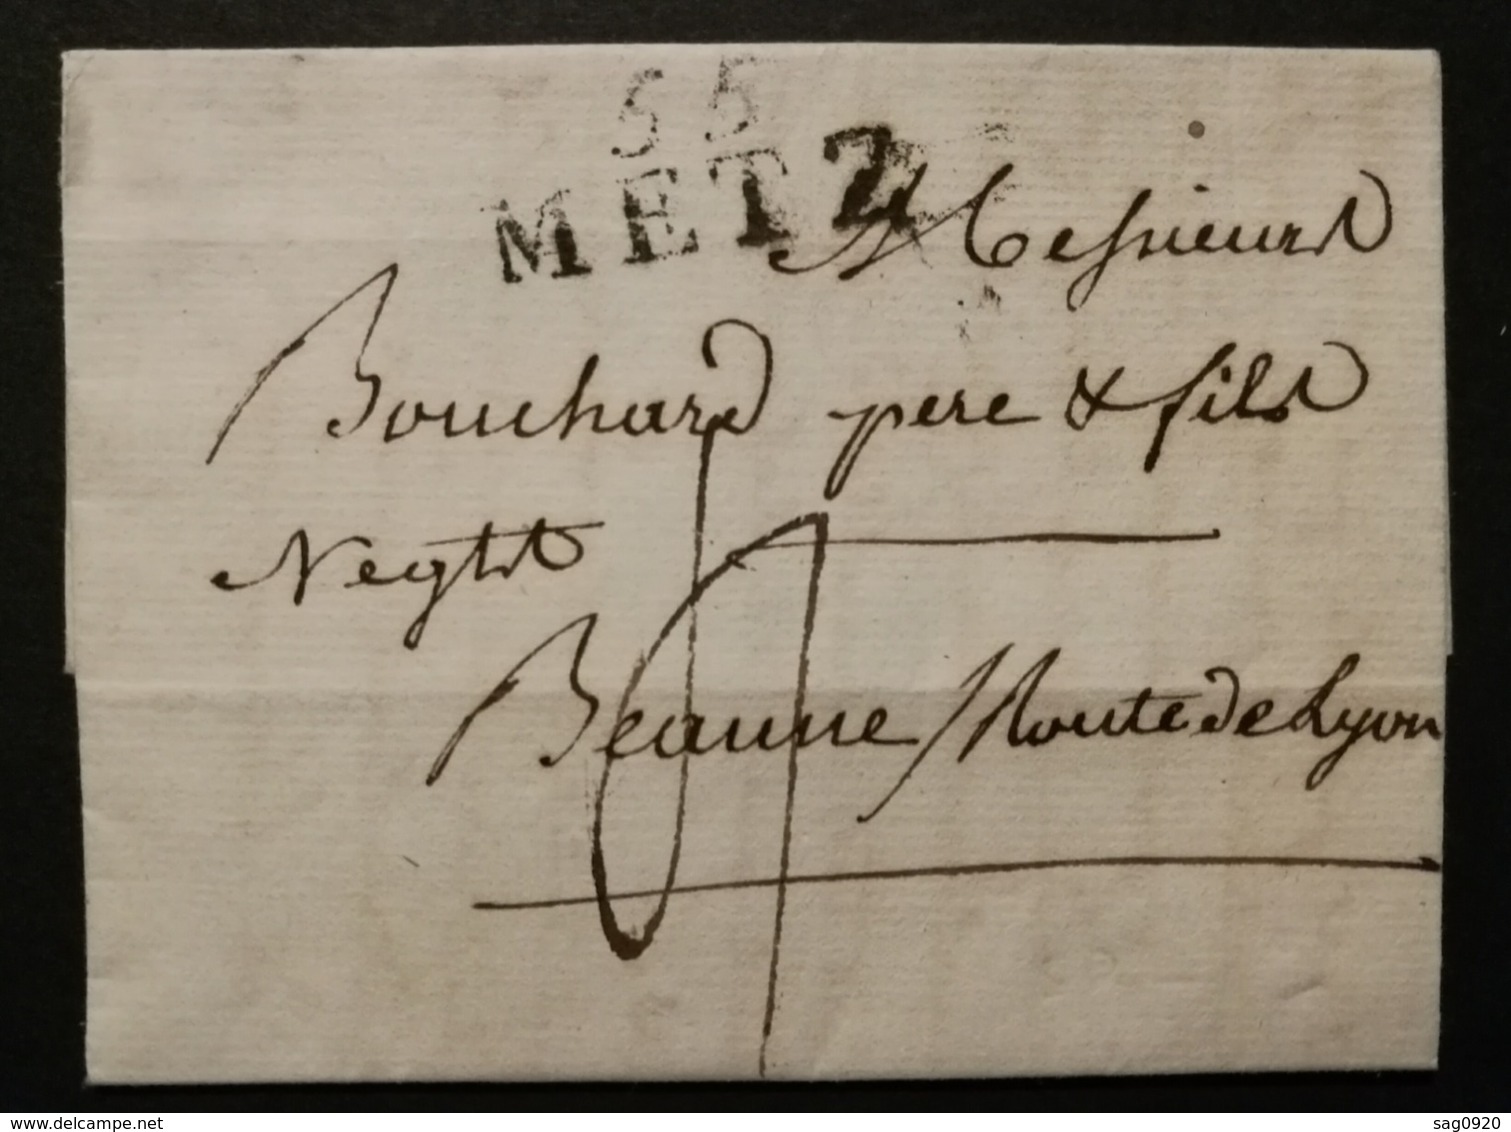 55
METZ
Messieurs
Bouchard pere & fils
Negts
Beaune / Route de Lyon
delcampe.net
sag0920